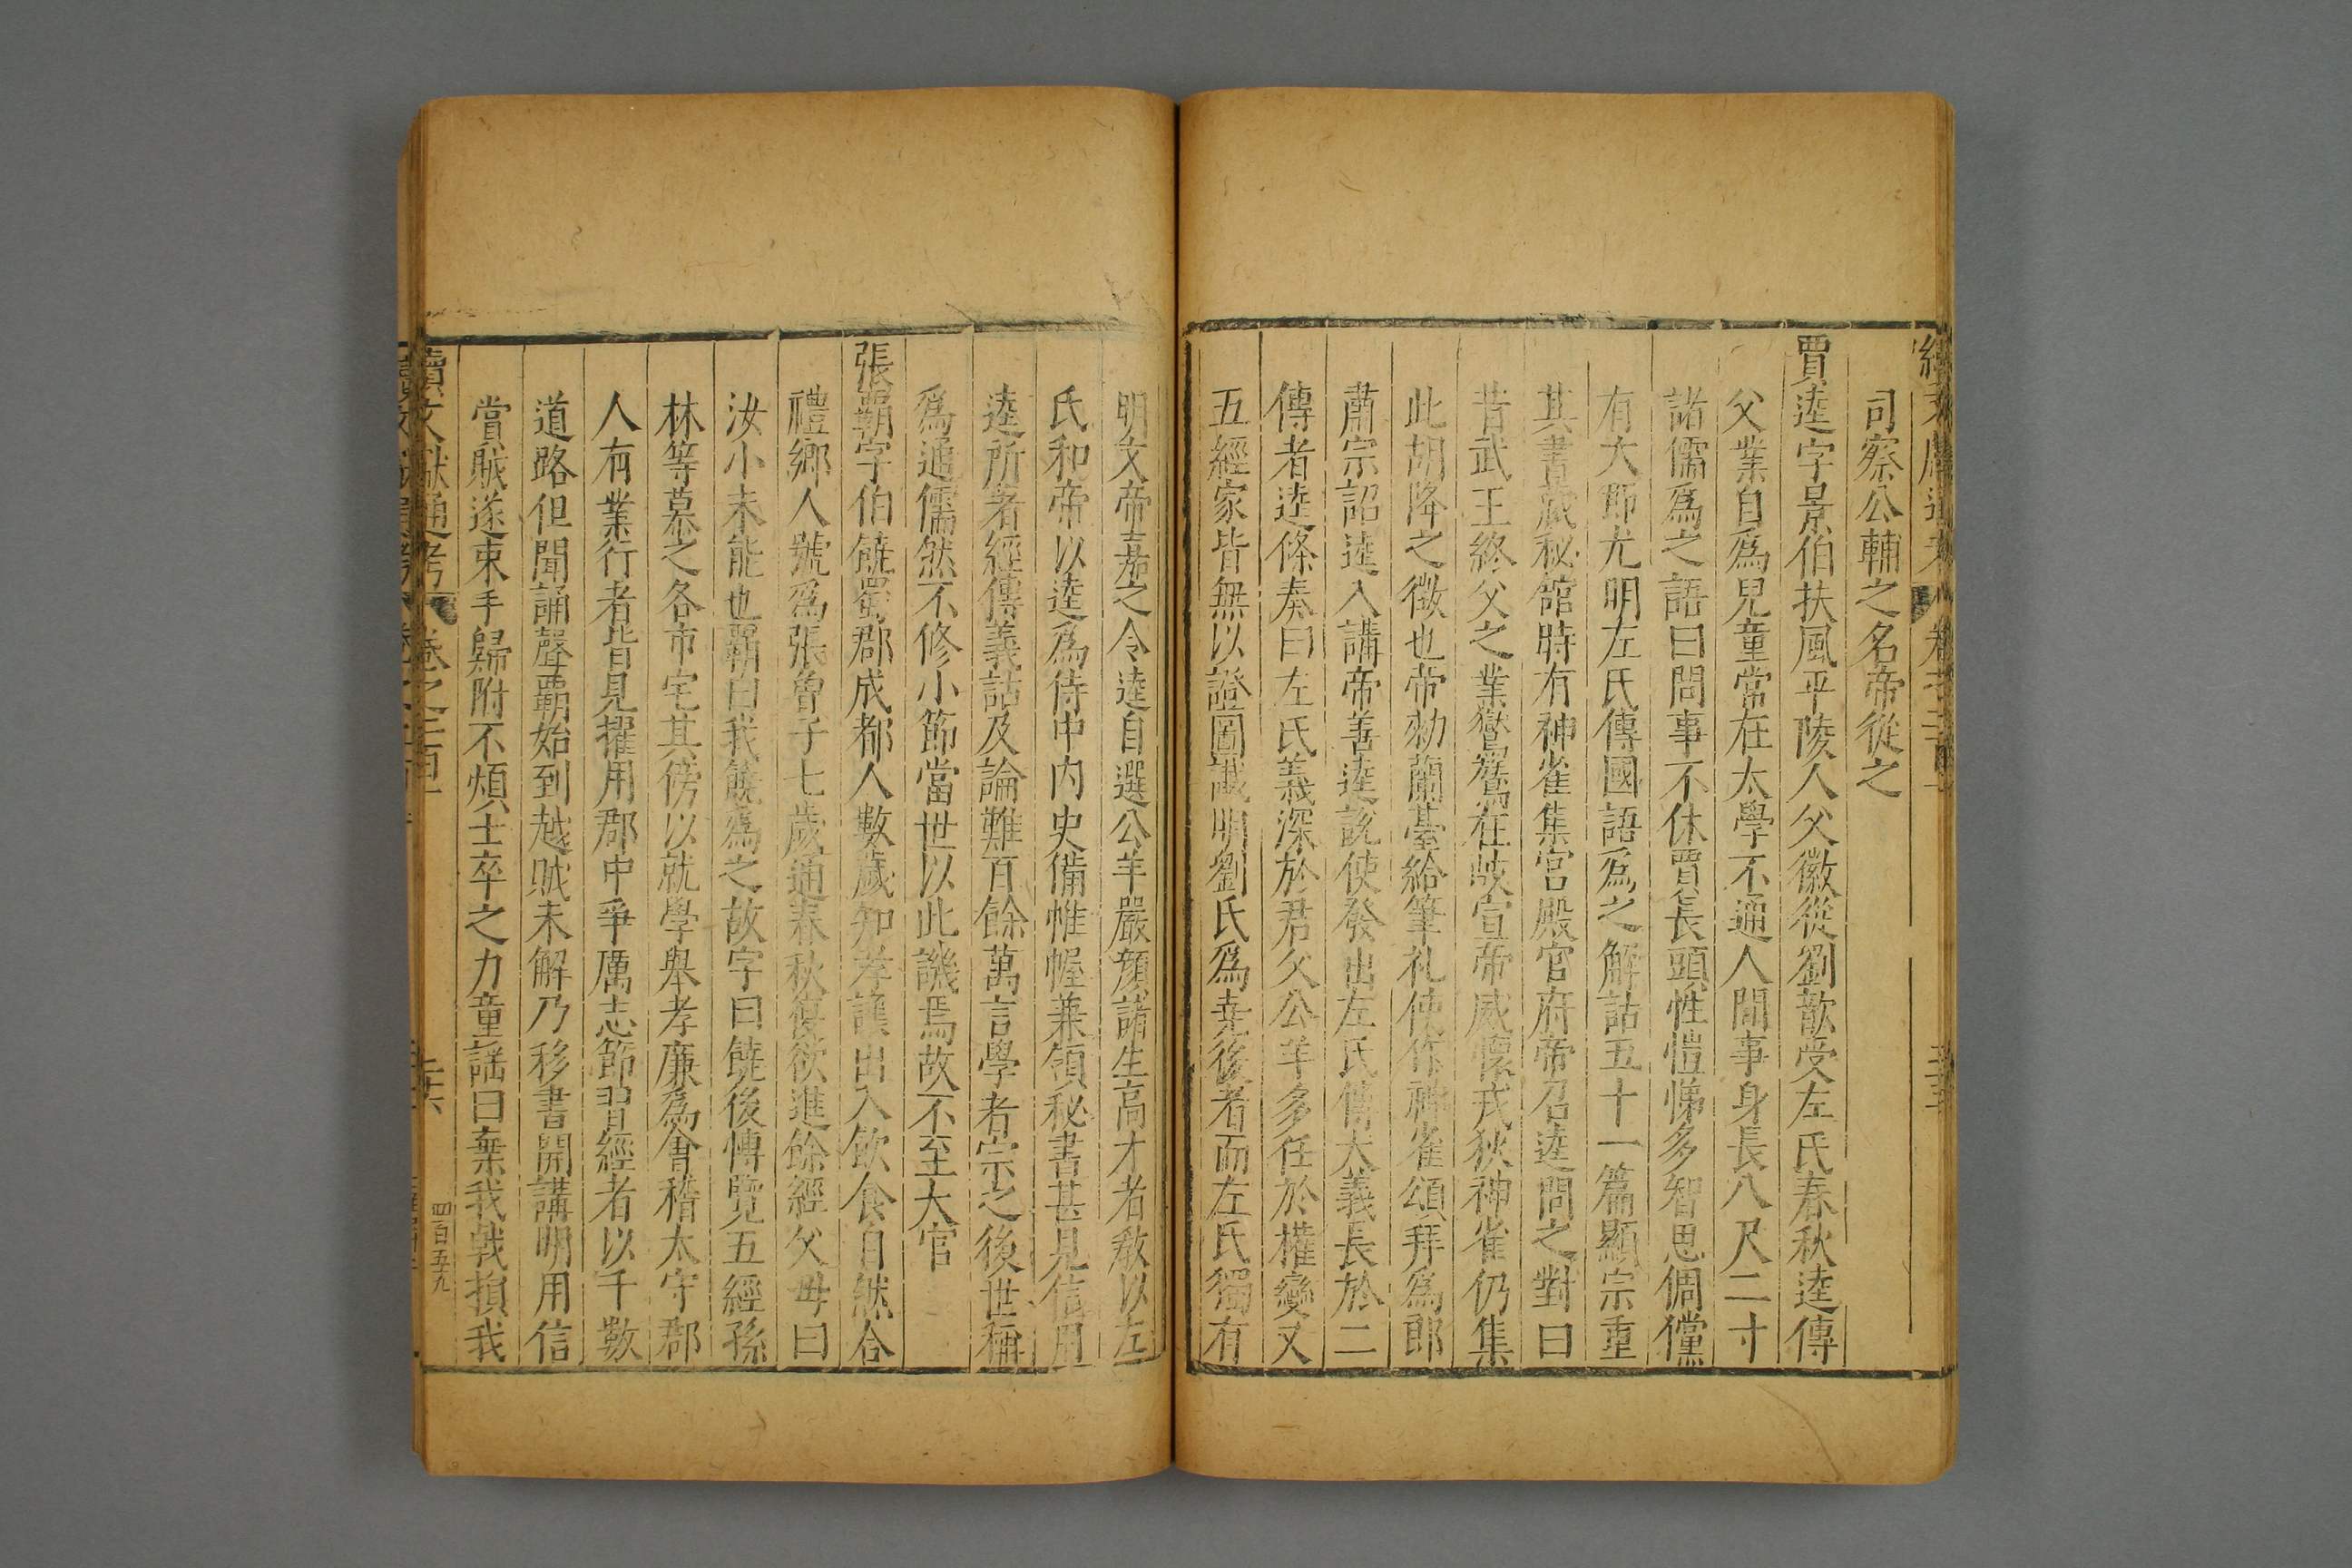 司察公輔之名帝從之
賈逵字景伯扶風平陵人父徽從劉歆受左氏春秋逵傳
父業自爲兒童常在太學不通人間事身長八尺二寸
諸儒爲之語曰問事不休賈長頭性愷悌多智思倜儻
有大節尤明左氏傳國語爲之解詁五十一篇顯宗重
其書藏秘館時有神雀集宮殿官府帝召逵問之對曰
昔武王終父之業鸑鷟在岐宣帝威懷戎狄神雀仍集
此胡降之徵也帝勑蘭臺給筆札使作神雀頌拜爲郎
肅宗詔逵入講帝善逵說使發出左氏傳大義長於二
傳者逵條奏曰左氏義深於君父公羊多任於權變又
五經家皆無以證圖讖明劉氏爲堯後者而左氏獨有
明文帝嘉之令逵自選公羊嚴顏諸生高才者敎以左
氏和帝以逵爲侍中内史備帷幄兼領秘書甚見信用
逵所著經傳義詁及論難百餘萬言學者宗之後世稱
爲通儒然不修小節當世以此譏焉故不至大官
張霸字伯饒蜀郡成都人數歲知孝讓出入飲食自然合
禮鄉人號爲張曾子七歲通春秋復欲進餘經父母曰
汝小未能也霸曰我饒爲之故字曰饒後博覽五經孫
林等慕之各市宅其傍以就學舉孝廉爲會稽太守郡
人有業行者皆見擢用郡中爭厲志節習經者以千數
道路但聞誦聲霸始到越賊未解乃移書開講明用信
賞賊遂束手歸附不煩士卒之力童謡曰棄我戟損我
續文獻通考 卷之二百十
二十六
四百五十九